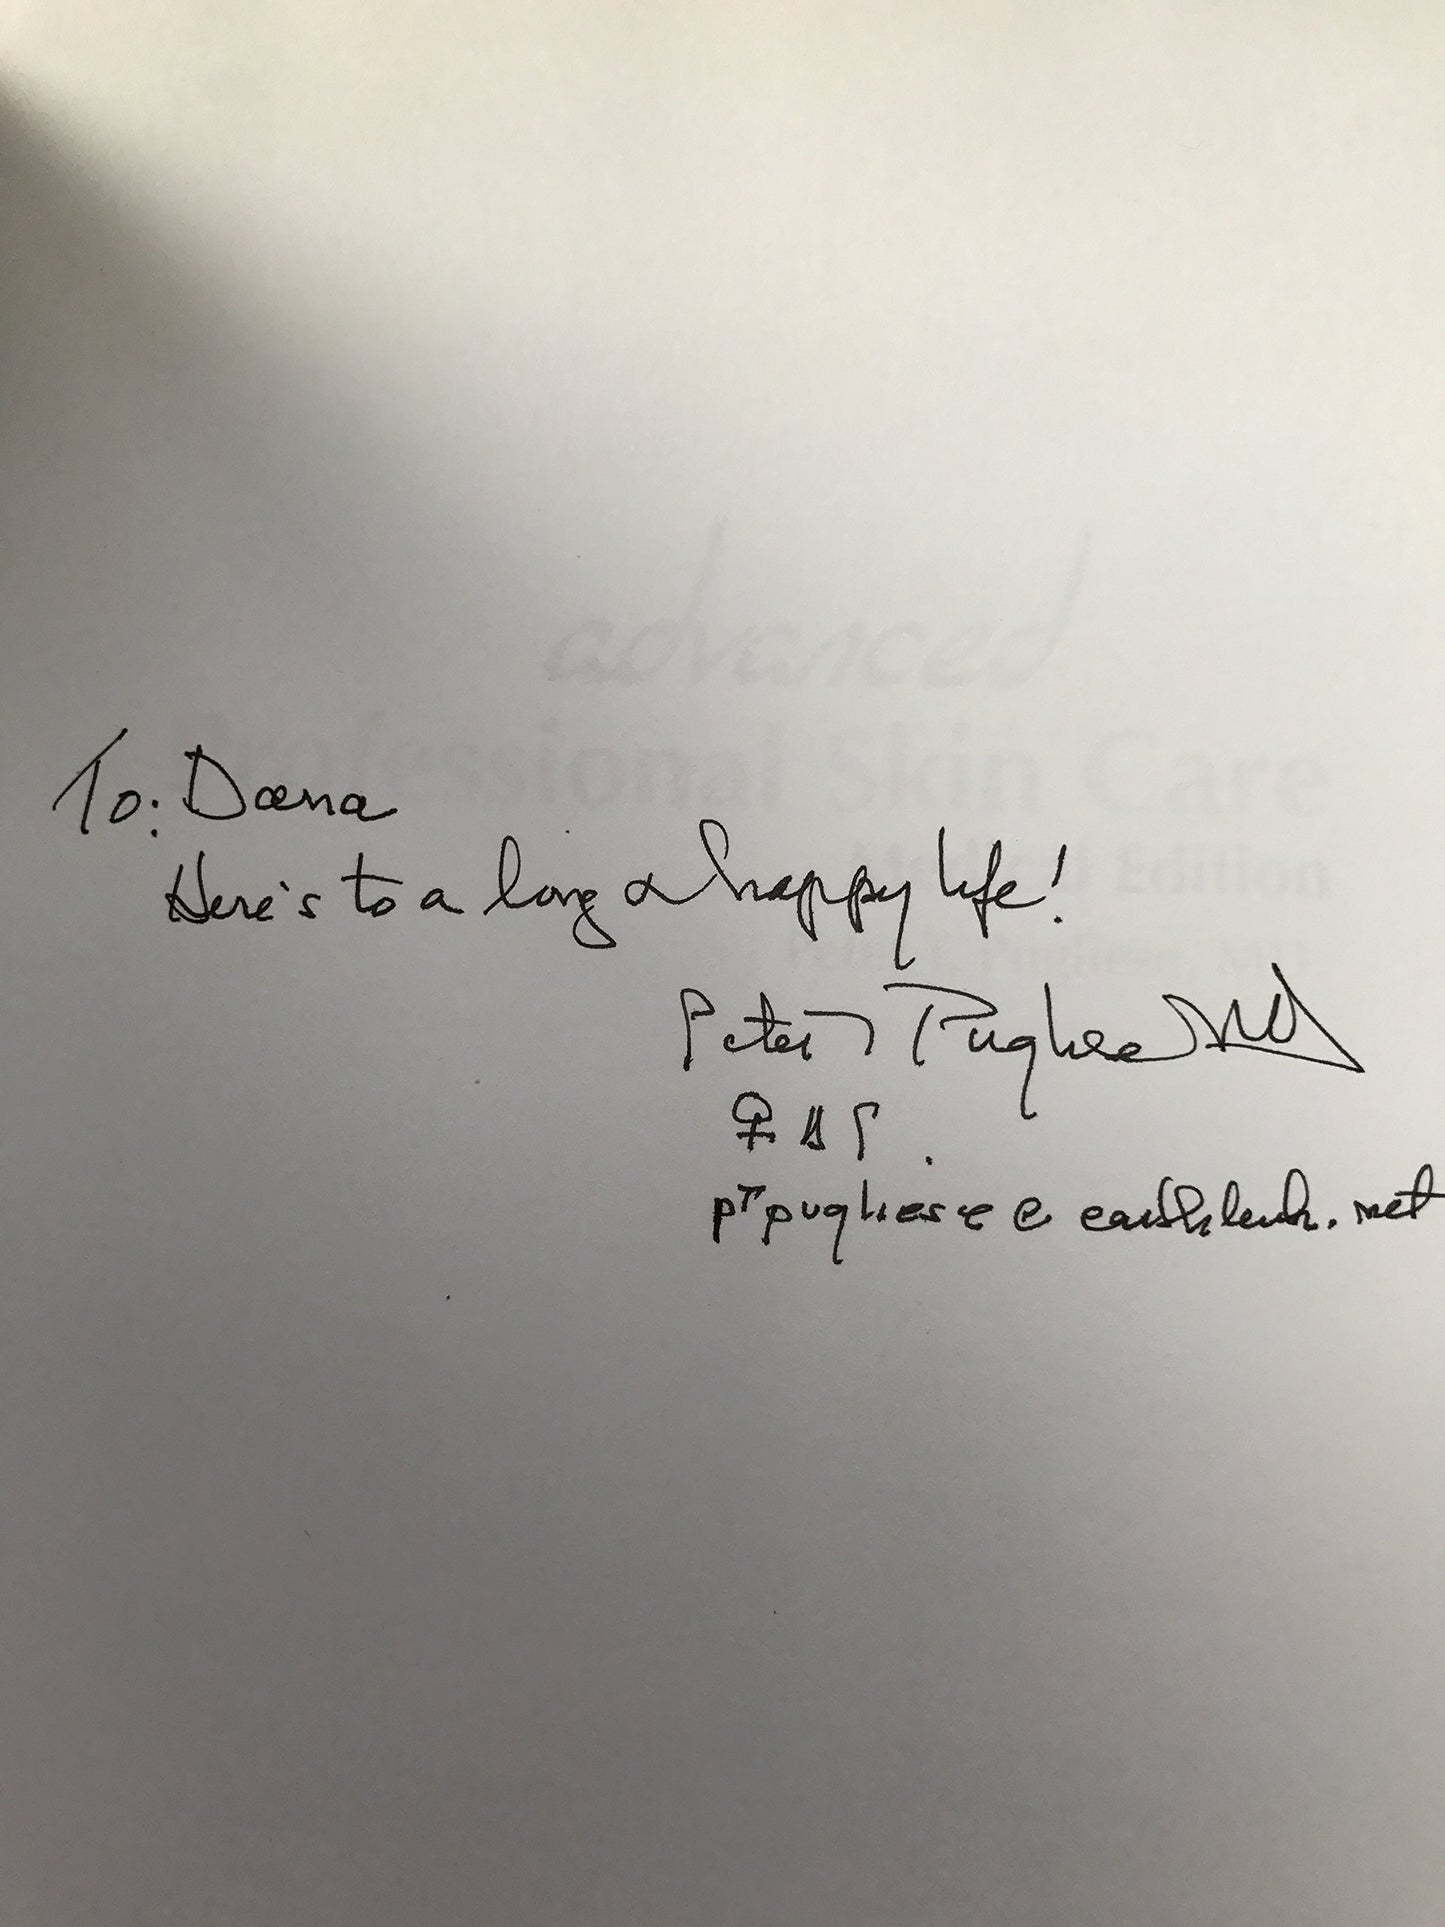 advanced
Professional Skin Care
Medical Edition
Pugliese, MD
To: Dœna
Here's to a long & happy life!
Peter T Pugliese MD
♀
ptpugliese@earthlink.net